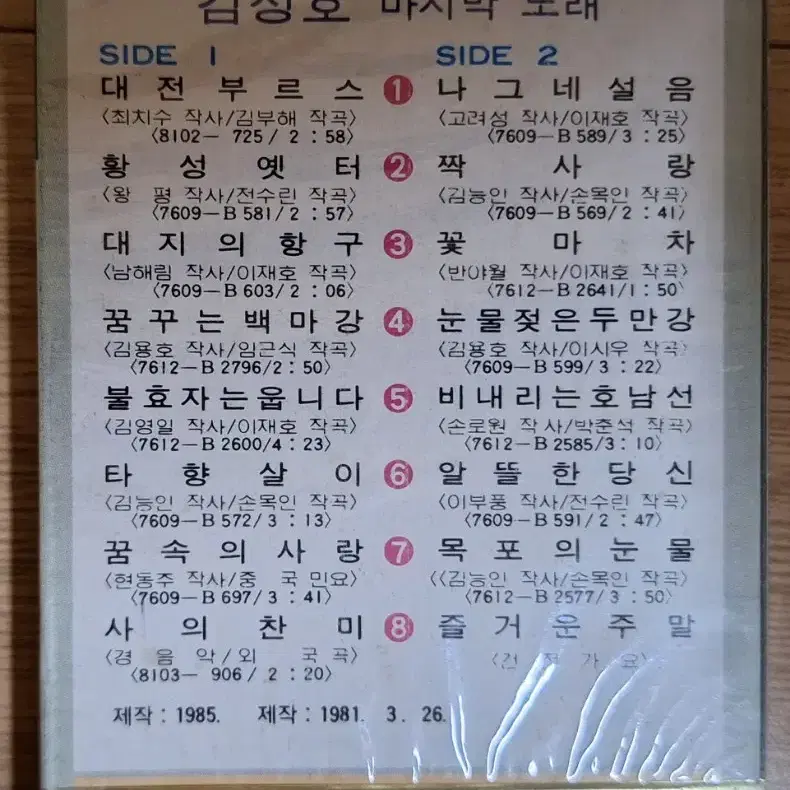 김정호 마지막 노래
SIDE 1 SIDE 2
대전부르스 1 나그네설음
〈최치수 작사/김부해 작곡〉 〈고려성 작사/이재호 작곡〉
〈8102－ 725 / 2 : 58〉 〈7609－B 589 / 3 : 25〉
황성옛터 2 짝사랑
〈왕 평 작사/전수린 작곡〉 〈김능인 작사/손목인 작곡〉
〈7609－B 581 / 2 : 57〉 〈7609－B 569 / 2 : 41〉
대지의항구 3 꽃마차
〈남해림 작사/이재호 작곡〉 〈반야월 작사/이재호 작곡〉
〈7609－B 603 / 2 : 06〉 〈7612－B 2641 / 1 : 50〉
꿈꾸는백마강 4 눈물젖은두만강
〈김용호 작사/임근식 작곡〉 〈김용호 작사/이시우 작곡〉
〈7612－B 2796 / 2 : 50〉 〈7609－B 599 / 3 : 22〉
불효자는웁니다 5 비내리는호남선
〈김영일 작사/이재호 작곡〉 〈손로원 작사/박춘석 작곡〉
〈7612－B 2600 / 4 : 23〉 〈7612－B 2585 / 3 : 10〉
타향살이 6 알뜰한당신
〈김능인 작사/손목인 작곡〉 〈이부풍 작사/전수린 작곡〉
〈7609－B 572 / 3 : 13〉 〈7609－B 591 / 2 : 47〉
꿈속의사랑 7 목포의눈물
〈현동주 작사/중 국 민요〉 〈〈김능인 작사/손목인 작곡〉
〈7609－B 697 / 3 : 41〉 〈7612－B 2577 / 3 : 50〉
사의찬미 8 즐거운주말
〈경 음 악/외 국 곡〉 〈건 전 가 요〉
〈8103－ 906 / 2 : 20〉
제작 : 1985. 제작 : 1981. 3. 26.